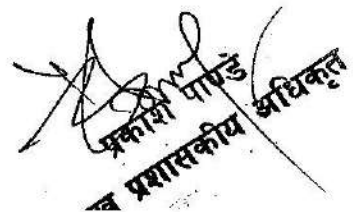 प्रकाश पाण्डे
प्रशासकीय अधिकृत